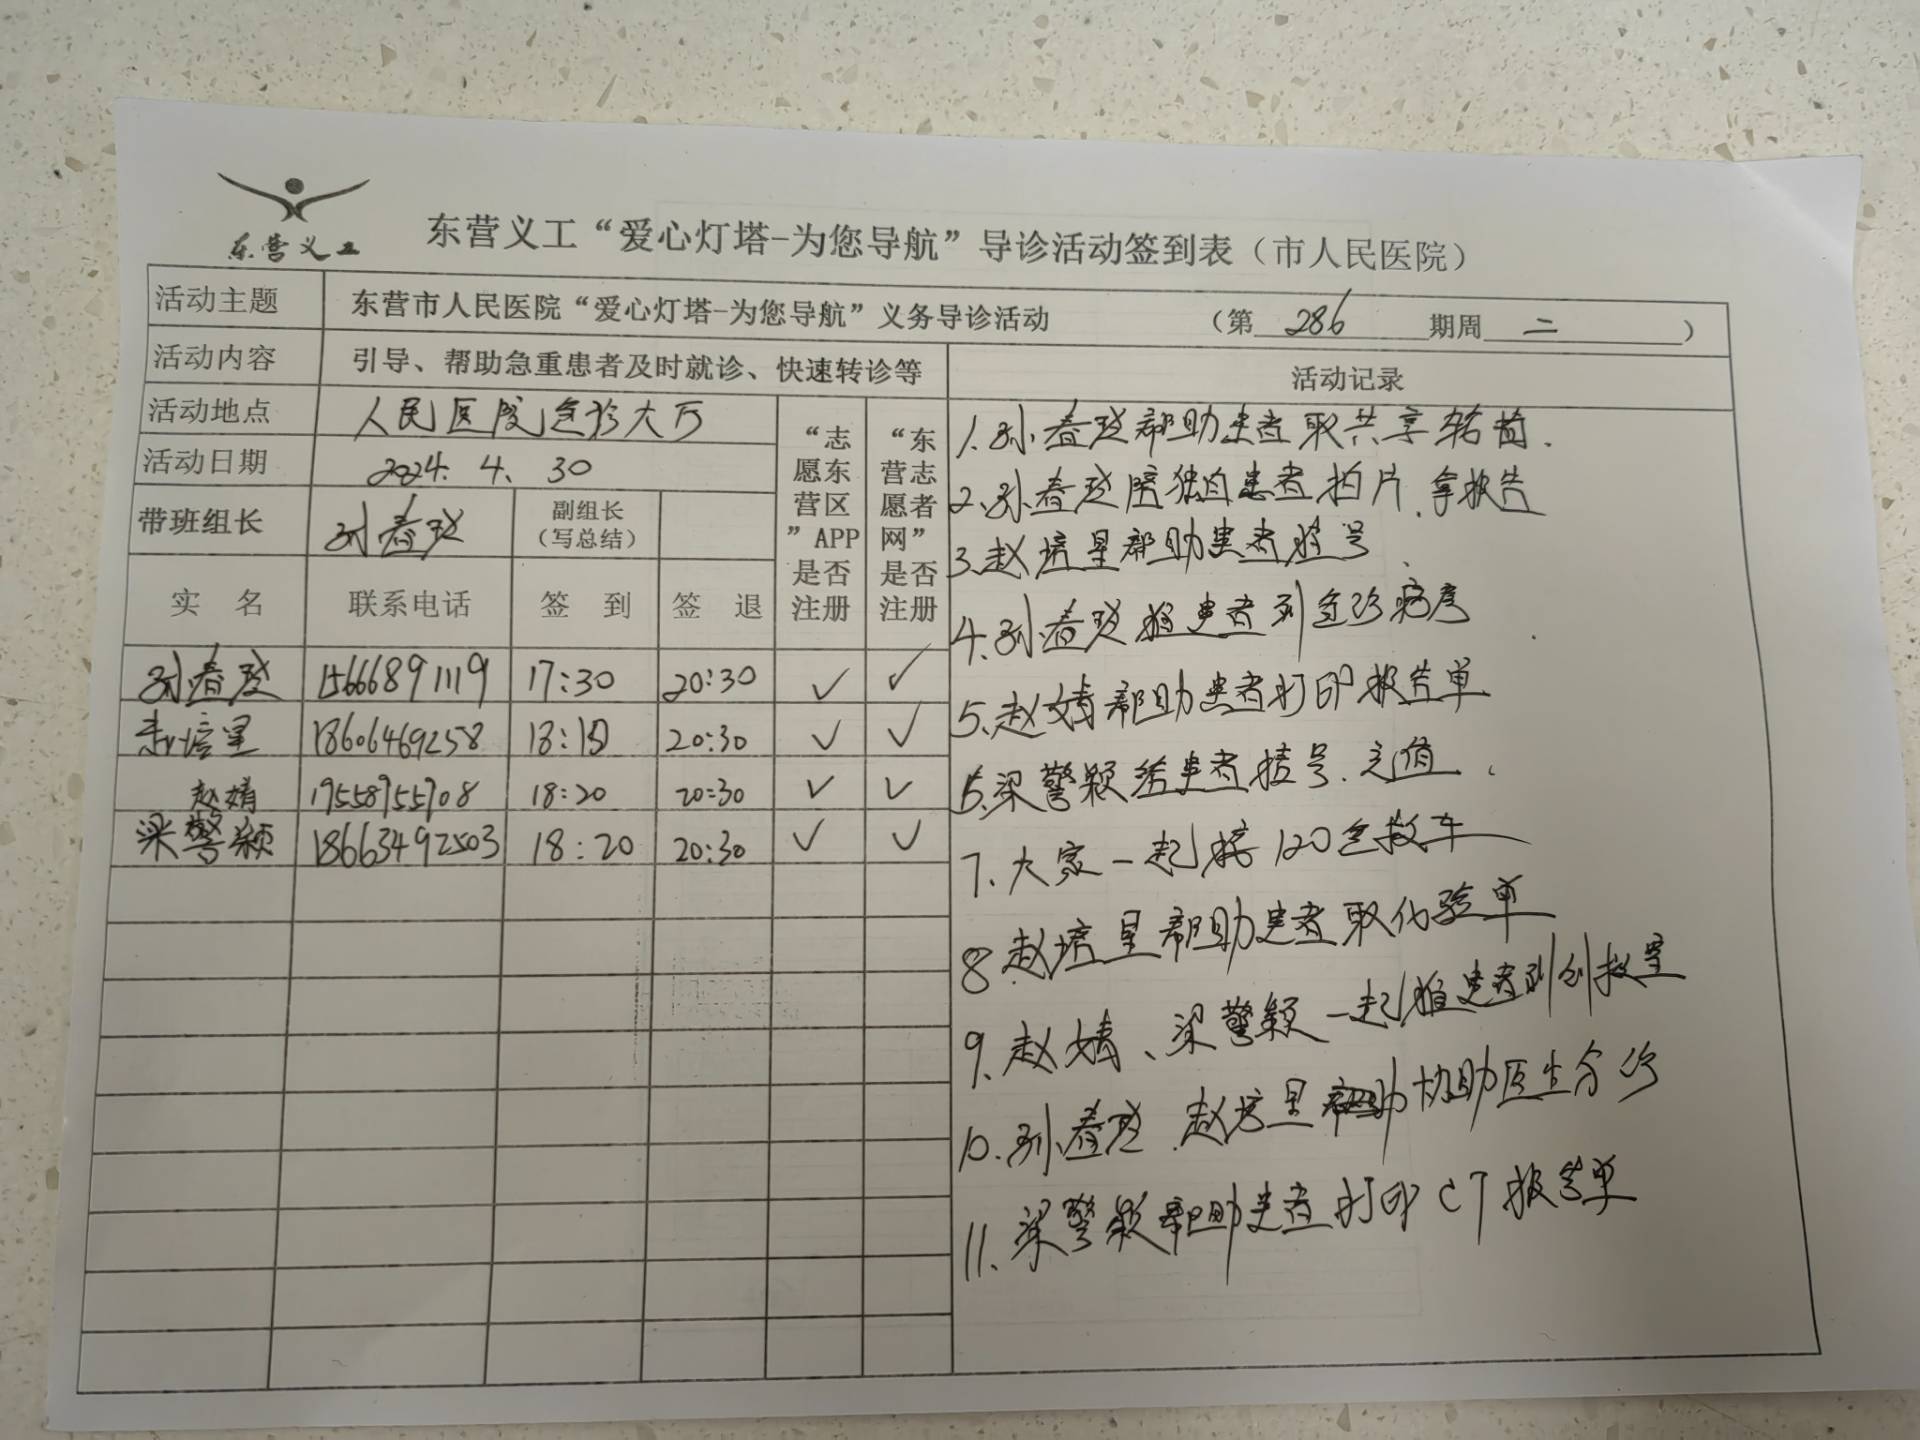 东营义工
东营义工“爱心灯塔-为您导航”导诊活动签到表（市人民医院）
活动主题 东营市人民医院“爱心灯塔-为您导航”义务导诊活动 （第 286 期周 二 ）
活动内容 引导、帮助急重患者及时就诊、快速转诊等 活动记录
活动地点 人民医院急诊大厅
活动日期 2024.4.30
带班组长 孙春玲 副组长（写总结）
“志愿东营区”APP是否注册
“东营志愿者网”是否注册
实 名 联系电话 签 到 签 退
孙春玲 15666891119 17:30 20:30 ✓ ✓
赵培星 18606469258 18:10 20:30 ✓ ✓
赵婧 19558955708 18:20 20:30 ✓ ✓
梁警颖 18663492503 18:20 20:30 ✓ ✓
1.孙春玲帮助患者取共享轮椅.
2.孙春玲陪独自患者拍片.拿报告
3.赵培星帮助患者挂号.
4.孙春玲推患者到急诊病房
5.赵婧帮助患者打印报告单
6.梁警颖给患者挂号.充值.
7.大家一起接120急救车
8.赵培星帮助患者取化验单
9.赵婧、梁警颖一起推患者到抢救室
10.孙春玲.赵培星协助医生分诊
11.梁警颖帮助患者打印CT报告单